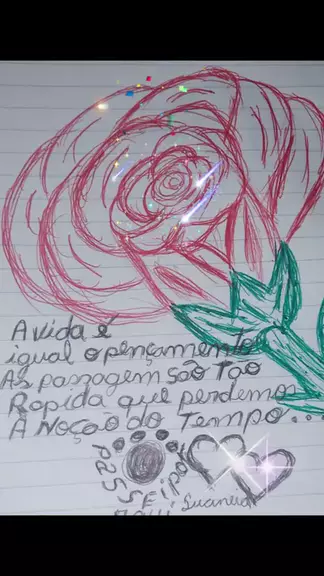 A vida é
igual o pençamento
As paszagem são tão
Rapida que perdemos
A Noção do Tempo...
PASSEi